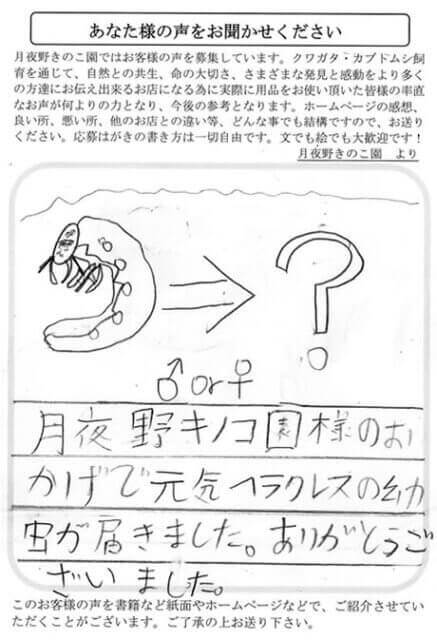 あなた様の声をお聞かせください
月夜野きのこ園ではお客様の声を募集しています。クワガタ・カブトムシ飼
育を通じて、自然との共生、命の大切さ、さまざまな発見と感動をより多く
の方達にお伝え出来るお店になる為に実際に用品をお使い頂いた皆様の率直
なお声が何よりの力となり、今後の参考となります。ホームページの感想、
良い所、悪い所、他のお店との違い等、どんな事でも結構ですので、お送り
ください。応募はがきの書き方は一切自由です。文でも絵でも大歓迎です！
月夜野きのこ園　より
?
♂or♀
月夜野キノコ園様のお
かげで元気ヘラクレスの幼
虫が届きました。ありがとうご
ざいました。
このお客様の声を書籍など紙面やホームページなどで、ご紹介させてい
ただくことがございます。ご了承の上お送り下さい。